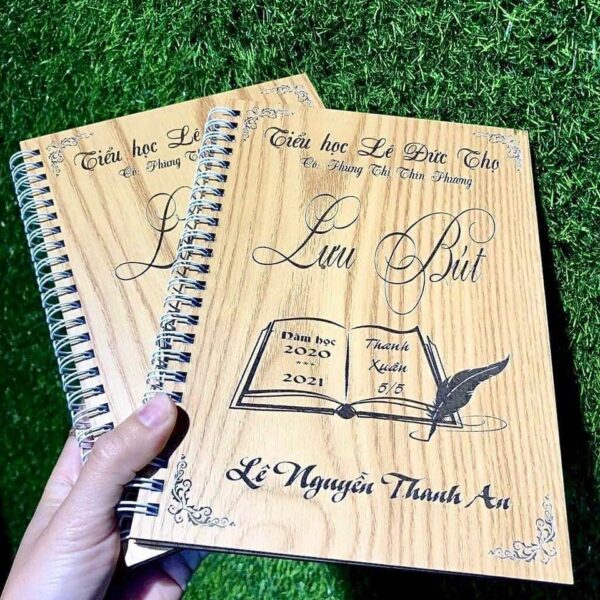 Tiểu học Lê
Cô: Phùng
L
Tiểu học Lê Đức Thọ
Cô: Phùng Thị Thìn Phương
Lưu Bút
Năm học
2020
***
2021
Thanh
Xuân
5/5
Lê Nguyễn Thanh An